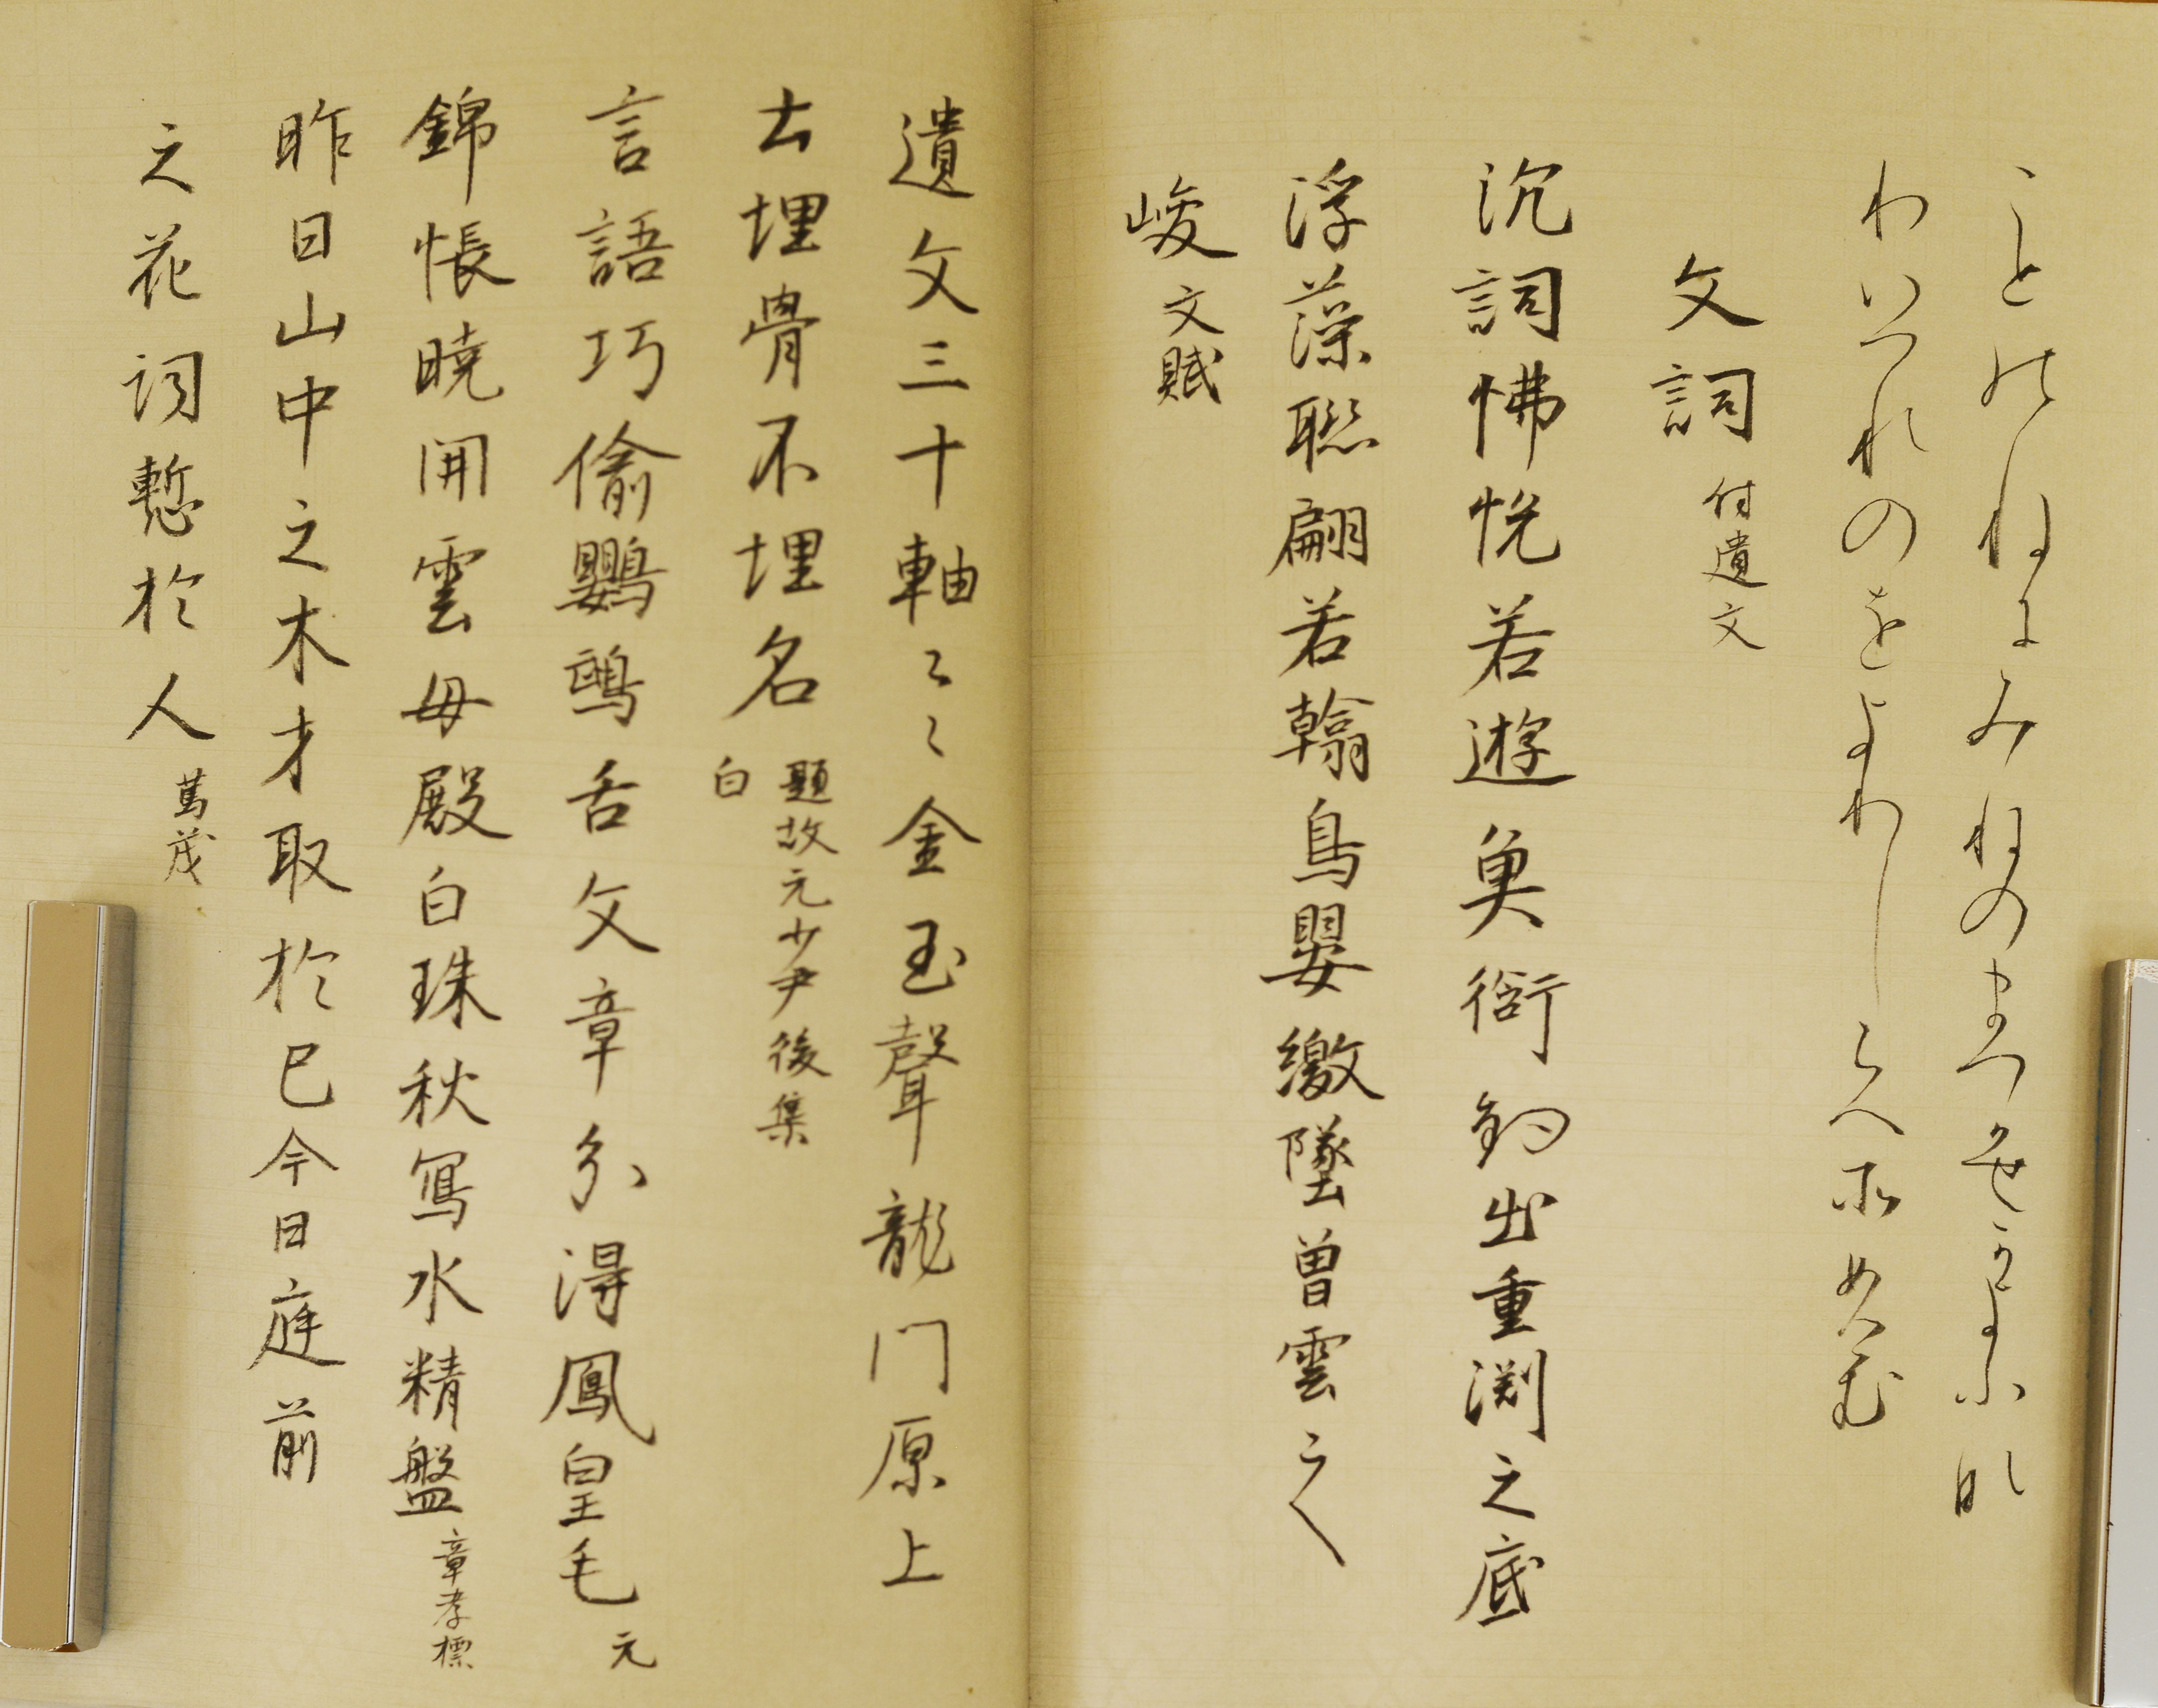 ことのねにみねのまつかせかよふな
りいつれのをよりしらへそめけむ
文詞 付遺文
沉詞怫悦若遊魚銜鈎出重渕之底
浮藻聯翩若翰鳥嬰繳墜曽雲之
峻 文賦
遺文三十軸々々金玉聲龍門原上
土埋骨不埋名 題故元少尹後集 白
言語巧偷鸚鵡舌文章分得鳳皇毛 元
錦帳曉開雲母殿白珠秋寫水精盤 章孝標
昨日山中之木才取於己今日庭前
之花詞慙於人 篤茂